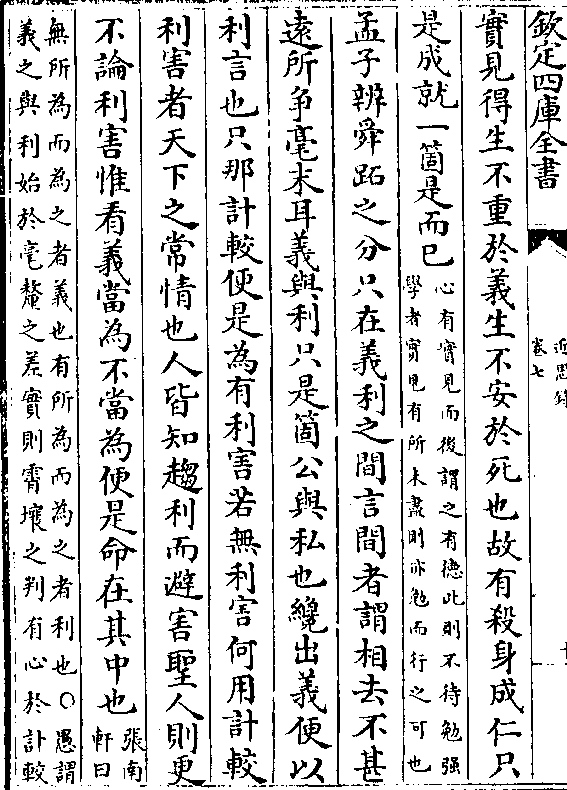 欽定四庫全書
近思錄
卷七
實見得生不重於義生不安於死也故有殺身成仁只
是成就一箇是而已
心有實見而後謂之有德此則不待勉强
學者實見有所未盡則亦勉而行之可也
孟子辨舜跖之分只在義利之間言間者謂相去不甚
遠所爭毫末耳義與利只是箇公與私也纔出義便以
利言也只那計較便是為有利害若無利害何用計較
利害者天下之常情也人皆知趨利而避害聖人則更
不論利害惟看義當為不當為便是命在其中也
張南
軒曰
無所為而為之者義也有所為而為之者利也〇愚謂
義之與利始於毫釐之差實則霄壤之判有心於計較